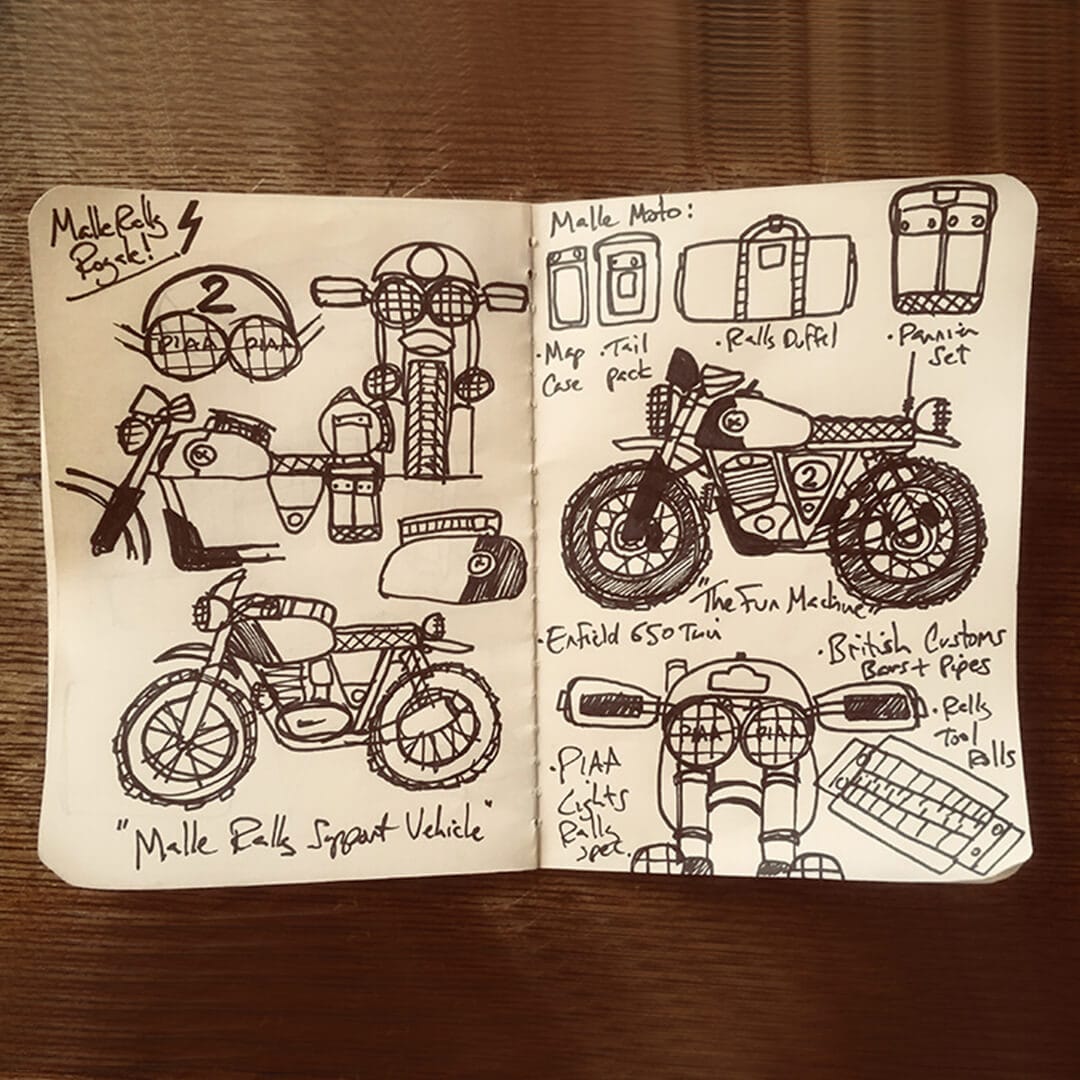 Malle Rally
Royale!
2
PIAA PIAA
"Malle Rally Support Vehicle"
Malle Moto:
· Map
Case
· Tail
pack
· Rally Duffel
· Pannier
Set
2
"The Fun Machine"
· Enfield 650 Twin
· British Customs
Bars + Pipes
PIAA PIAA
· Rally
Tool
Rolls
· PIAA
Lights
Rally
Spec.